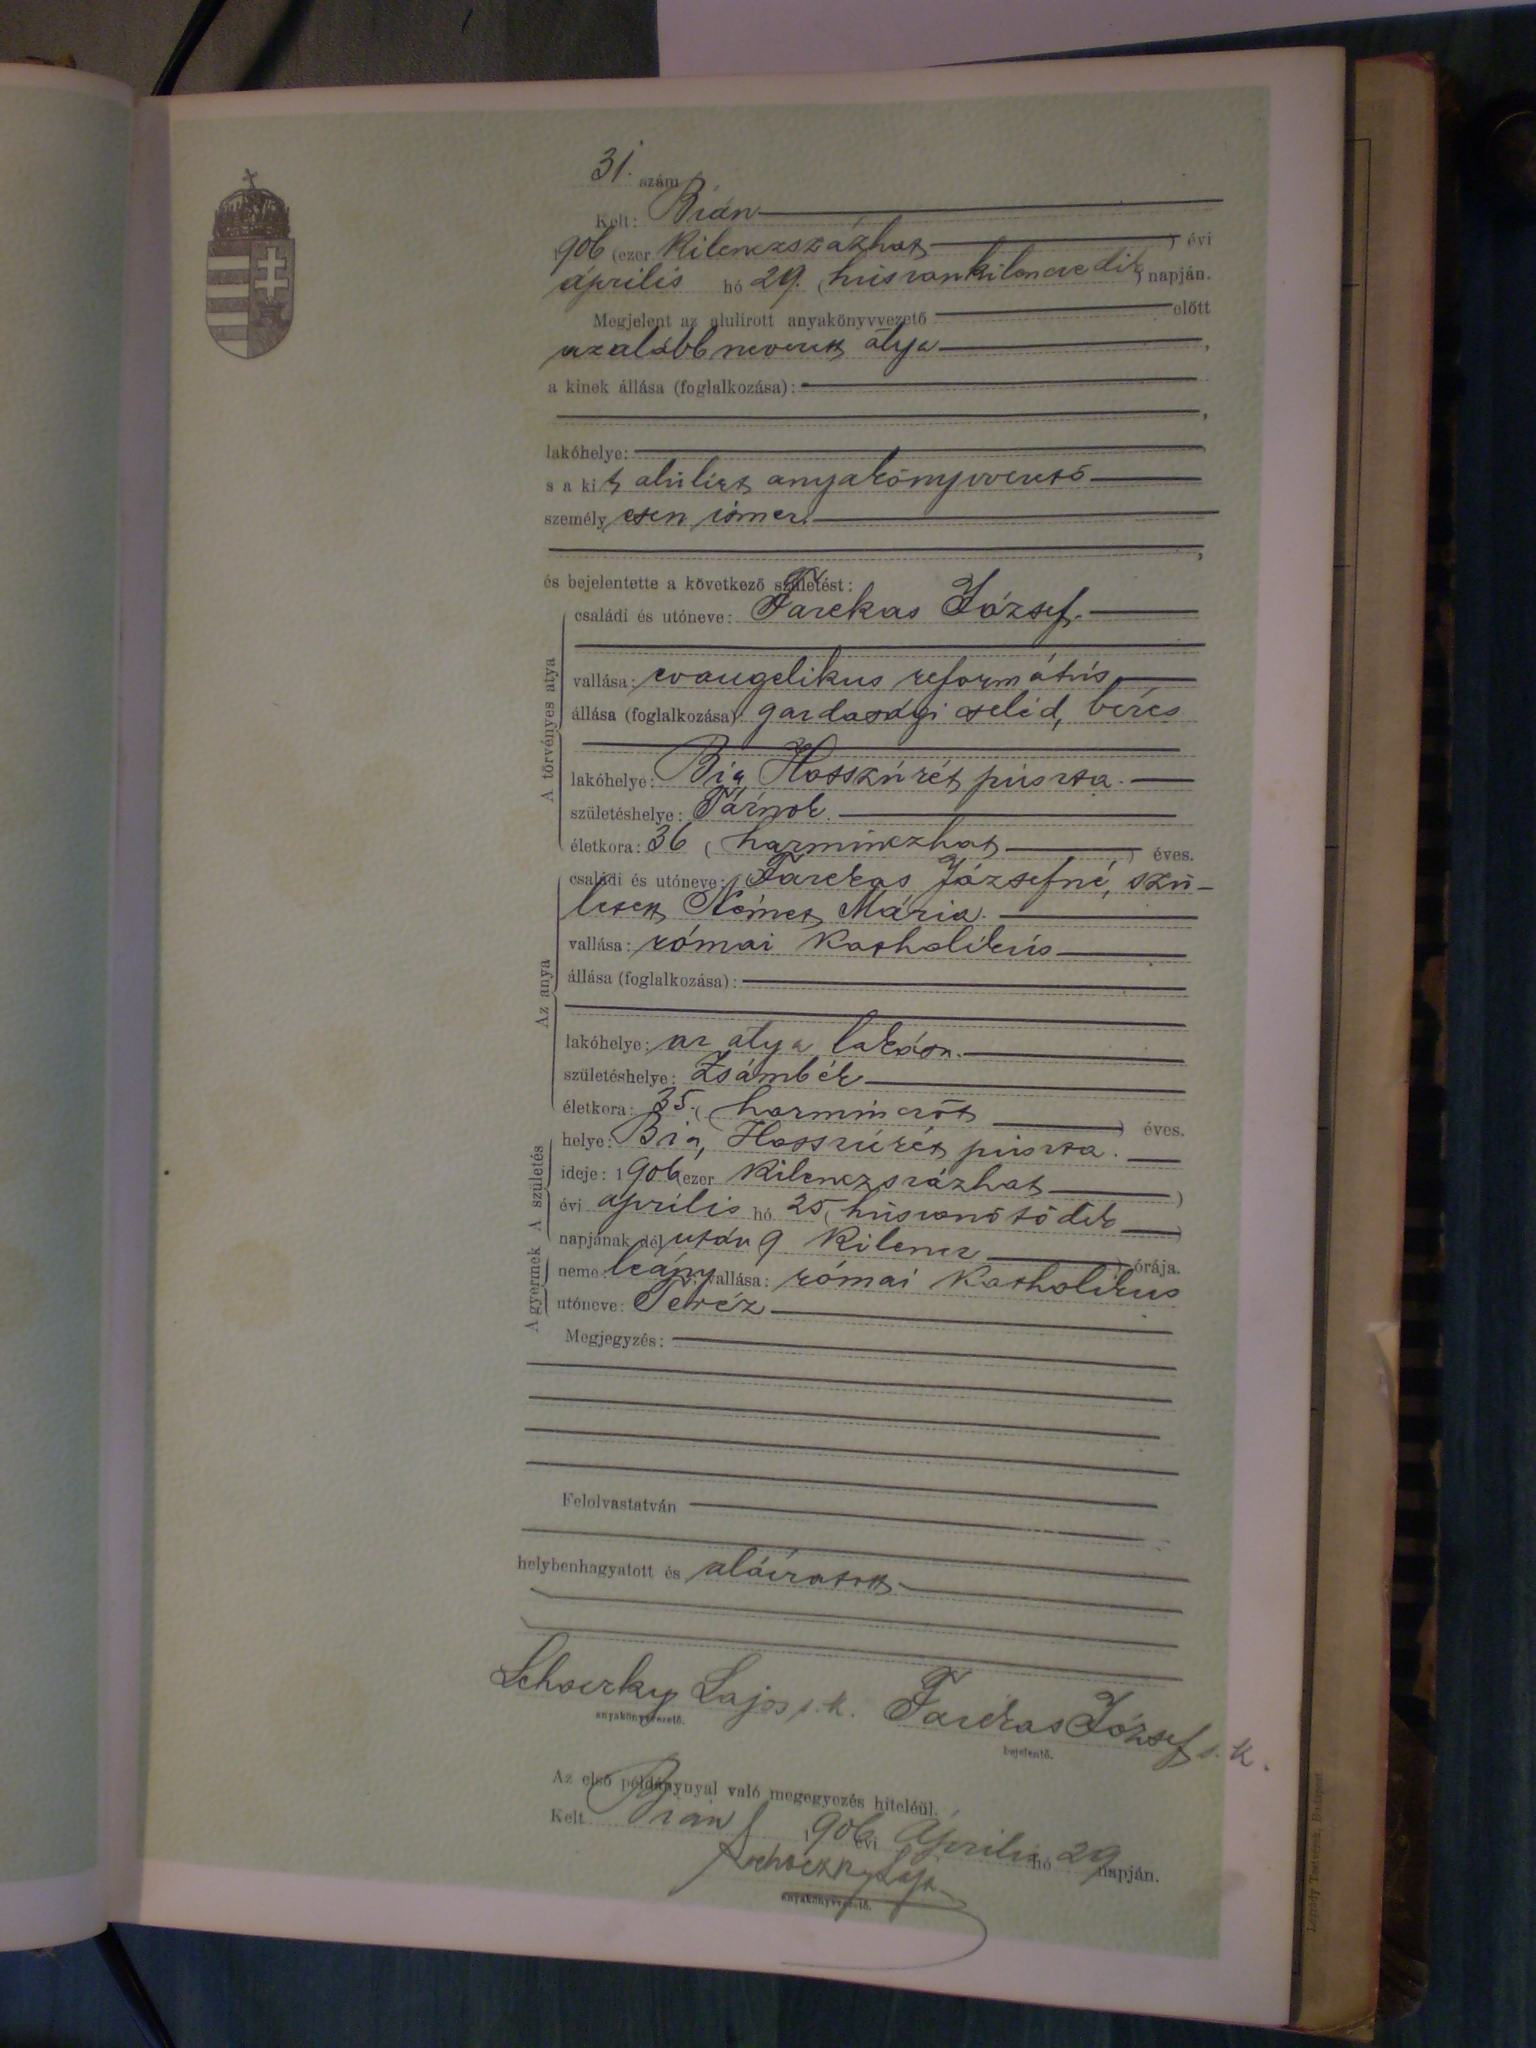 31. szám
Kelt: Bián
1906 (ezer kilenczszázhat) évi
április hó 29. (huszonkilenczedik) napján.
Megjelent az alulírott anyakönyvvezető előtt
az alább nevezett atya,
a kinek állása (foglalkozása):
lakóhelye:
s a kit alulírt anyakönyvvezető
személyesen ismer.
és bejelentette a következő születést:
A törvényes atya
családi és utóneve: Farkas József.
vallása: evangelikus református
állása (foglalkozása): gazdasági cseléd, béres
lakóhelye: Bia Hosszúrét puszta.
születéshelye: Tárnok.
életkora: 36 (harminczhat) éves.
Az anya
családi és utóneve: Farkas Józsefné, szü-
letett Német Mária.
vallása: római katholikus
állása (foglalkozása):
lakóhelye: az atya lakásán.
születéshelye: Zsámbék
életkora: 35. (harminczöt) éves.
A születés
helye: Bia, Hosszúrét puszta.
ideje: 1906 (ezer kilenczszázhat)
évi április hó 25 (huszonötödik)
napjának dél után 9 kilencz) órája.
A gyermek
neme: leány; vallása: római katholikus
utóneve: Teréz
Megjegyzés:
Felolvastatván
helybenhagyatott és aláíratott.
Lajos s. k. Farkas József s. k.
anyakönyvvezető. bejelentő.
Az első példánynyal való megegyezés hiteléül.
Kelt Bián 1906 évi április hó 29 napján.
anyakönyvvezető.